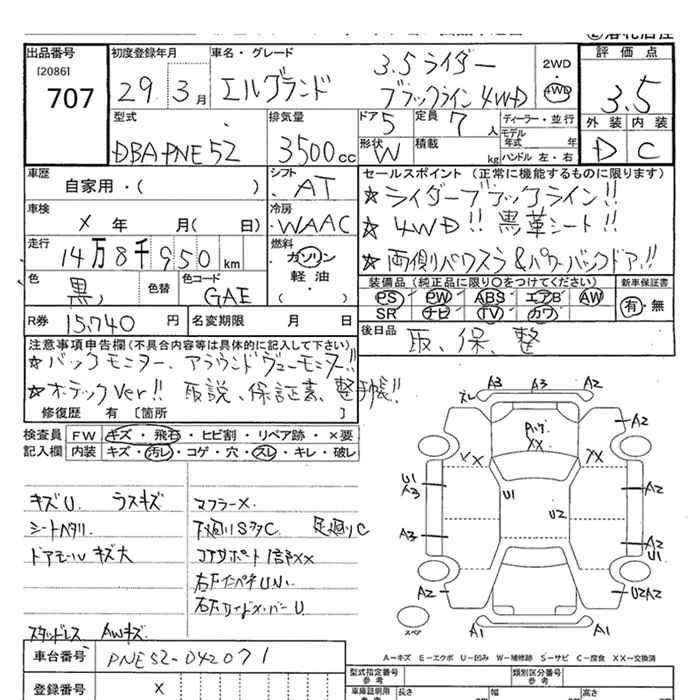 出品番号 初度登録年月 車名・グレード 評価点
[2086] 29年 3月 エルグランド 3.5ライダー 2WD
707 ブラックライン 4WD 4WD 3.5
型式 排気量 ドア 定員 ディーラー・並行 外装 内装
DBA-PNE52 3500cc 5 7人 モデル年式 年 D C
形状 W 積載 kg ハンドル 左・右
車歴 シフト セールスポイント (正常に機能するものに限ります)
自家用・( ) AT ☆ライダーブラックライン!!
車検 冷房 ☆4WD!! 黒革シート!!
X 年 月( 日) WAAC
走行 燃料 ☆両側パワスラ&パワーバックドア!!
14万8千950km ガソリン
色 色替 色コード 軽油 装備品 (純正品に限り○をつけてください) 新車保証書
黒 GAE ・( ) PS PW ABS エアB AW 有・無
SR ナビ TV カワ
R券 15,740円 名変期限 月 日 後日品 取、保、整
注意事項申告欄(不具合内容等は具体的に記入して下さい)
☆バックモニター、アラウンドヴューモニター!!
☆オーテックVer!! 取説、保証書、整手帳!!
修復歴 有 [箇所 ]
検査員 FW キズ・飛石・ヒビ割・リペア跡・×要
記入欄 内装 キズ・汚レ・コゲ・穴・スレ・キレ・破レ
A3 A3 A2
スレ A2
Aハゲ
XX
XX XX
U1 U1 A2
A3
U2
A3 A2
U1
A2 U2A2
A1 A1
スペア
キズU ラスキズ マフラーX
シートヘタリ 下廻りSサC 足廻りC
ドアモールキズ大 コアサポート1部XX
右FインペナUN
右Fサイドメンバー U
スタッドレス AWキズ
A－キズ E－エクボ U－凹み W－補修跡 S－サビ C－腐食 XX－交換済
車台番号 PNE52-042071
登録番号 X
型式指定番号 参考 類別区分番号 参考
車庫証明用 長さ 幅 高さ